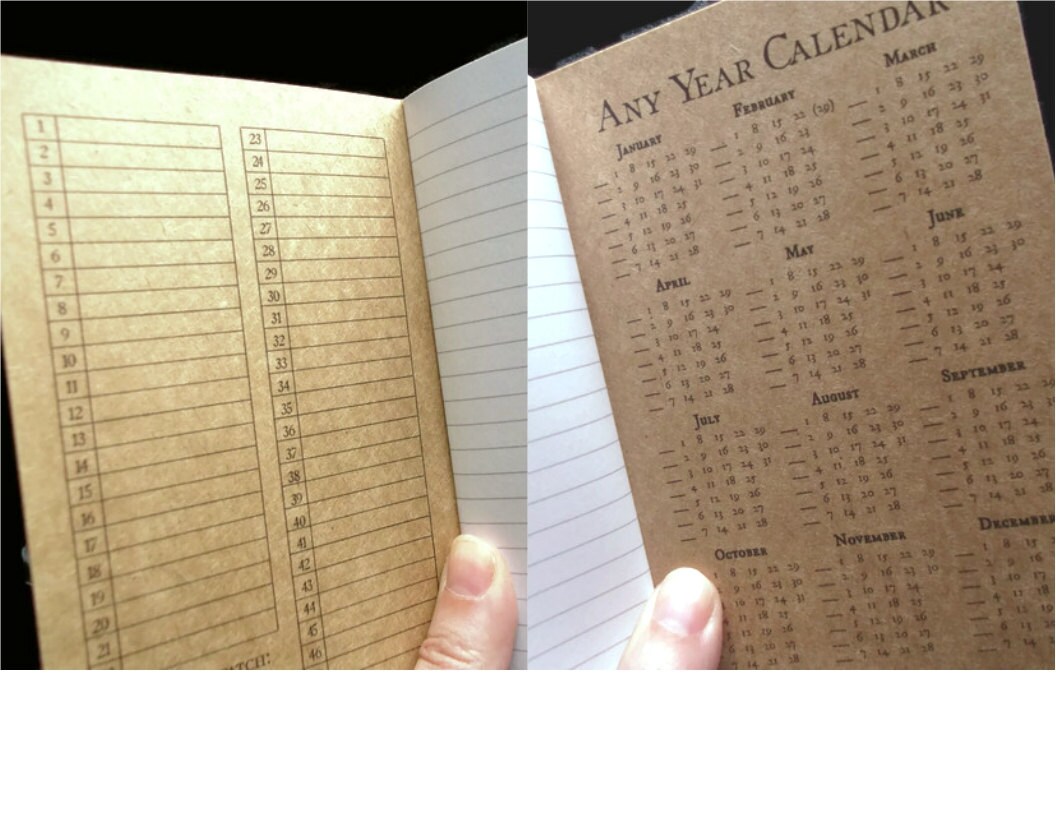 1
2
3
4
5
6
7
8
9
10
11
12
13
14
15
16
17
18
19
20
21
23
24
25
26
27
28
29
30
31
32
33
34
35
36
37
38
39
40
41
42
43
44
45
46
ANY YEAR CALENDAR
JANUARY
1 8 15 22 29
2 9 16 23 30
3 10 17 24 31
4 11 18 25
5 12 19 26
6 13 20 27
7 14 21 28
FEBRUARY
1 8 15 22 (29)
2 9 16 23
3 10 17 24
4 11 18 25
5 12 19 26
6 13 20 27
7 14 21 28
MARCH
1 8 15 22 29
2 9 16 23 30
3 10 17 24 31
4 11 18 25
5 12 19 26
6 13 20 27
7 14 21 28
APRIL
1 8 15 22 29
2 9 16 23 30
3 10 17 24
4 11 18 25
5 12 19 26
6 13 20 27
7 14 21 28
MAY
1 8 15 22 29
2 9 16 23 30
3 10 17 24 31
4 11 18 25
5 12 19 26
6 13 20 27
7 14 21 28
JUNE
1 8 15 22 29
2 9 16 23 30
3 10 17 24
4 11 18 25
5 12 19 26
6 13 20 27
7 14 21 28
JULY
1 8 15 22 29
2 9 16 23 30
3 10 17 24 31
4 11 18 25
5 12 19 26
6 13 20 27
7 14 21 28
AUGUST
1 8 15 22 29
2 9 16 23 30
3 10 17 24 31
4 11 18 25
5 12 19 26
6 13 20 27
7 14 21 28
SEPTEMBER
1 8 15 22
2 9 16 23
3 10 17 24
4 11 18 25
5 12 19 26
6 13 20 27
7 14 21 28
OCTOBER
1 8 15 22 29
9 16 23 30
10 17 24 31
11 18 25
12 19 26
13 20 27
14 21 28
NOVEMBER
1 8 15 22 29
2 9 16 23 30
3 10 17 24
4 11 18 25
5 12 19 26
6 13 20 27
7 14 21 28
DECEMBER
1 8 15
2 9 16
3 10 17
4 11 18
5 12 19
6 13 20
7 14 21